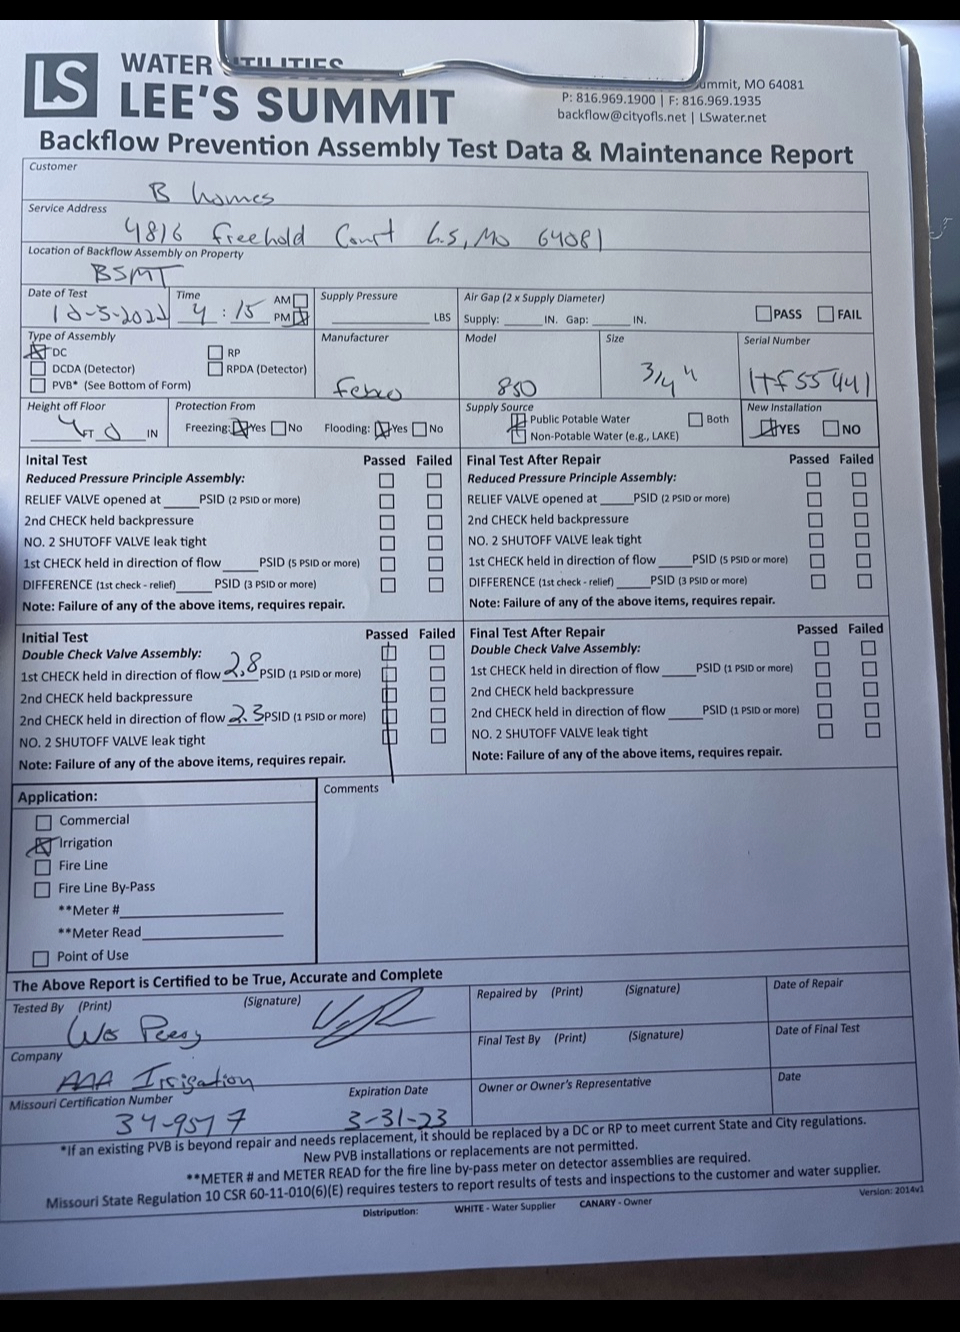 LS WATER UTILITIES
LEE'S SUMMIT
ummit, MO 64081
P: 816.969.1900 | F: 816.969.1935
backflow@cityofls.net | LSwater.net
Backflow Prevention Assembly Test Data & Maintenance Report
Customer
B homes
Service Address
4816 freehold Court L.S, Mo 64081
Location of Backflow Assembly on Property
BSMT
Date of Test Time AM PM Supply Pressure LBS Air Gap (2 x Supply Diameter)
4 : 15 Supply: IN. Gap: IN. PASS FAIL
Type of Assembly Manufacturer Model Size Serial Number
DC RP
DCDA (Detector) RPDA (Detector)
PVB* (See Bottom of Form)
Febco 850 3/4"
Height off Floor Protection From Supply Source New Installation
4 FT 0 IN Freezing: Yes No Flooding: Yes No Public Potable Water Both YES NO
Non-Potable Water (e.g., LAKE)
Inital Test Passed Failed Final Test After Repair Passed Failed
Reduced Pressure Principle Assembly: Reduced Pressure Principle Assembly:
RELIEF VALVE opened at PSID (2 PSID or more) RELIEF VALVE opened at PSID (2 PSID or more)
2nd CHECK held backpressure 2nd CHECK held backpressure
NO. 2 SHUTOFF VALVE leak tight NO. 2 SHUTOFF VALVE leak tight
1st CHECK held in direction of flow PSID (5 PSID or more) 1st CHECK held in direction of flow PSID (5 PSID or more)
DIFFERENCE (1st check - relief) PSID (3 PSID or more) DIFFERENCE (1st check - relief) PSID (3 PSID or more)
Note: Failure of any of the above items, requires repair. Note: Failure of any of the above items, requires repair.
Initial Test Passed Failed Final Test After Repair Passed Failed
Double Check Valve Assembly: Double Check Valve Assembly:
1st CHECK held in direction of flow 2.8 PSID (1 PSID or more) 1st CHECK held in direction of flow PSID (1 PSID or more)
2nd CHECK held backpressure 2nd CHECK held backpressure
2nd CHECK held in direction of flow 2.3 PSID (1 PSID or more) 2nd CHECK held in direction of flow PSID (1 PSID or more)
NO. 2 SHUTOFF VALVE leak tight NO. 2 SHUTOFF VALVE leak tight
Note: Failure of any of the above items, requires repair. Note: Failure of any of the above items, requires repair.
Application: Comments
Commercial
Irrigation
Fire Line
Fire Line By-Pass
**Meter #
**Meter Read
Point of Use
The Above Report is Certified to be True, Accurate and Complete
Tested By (Print) (Signature) Repaired by (Print) (Signature) Date of Repair
Wes
Final Test By (Print) (Signature) Date of Final Test
Company
AAA Irrigation
Owner or Owner's Representative Date
Missouri Certification Number Expiration Date
34-9517 3-31-23
*If an existing PVB is beyond repair and needs replacement, it should be replaced by a DC or RP to meet current State and City regulations.
New PVB installations or replacements are not permitted.
**METER # and METER READ for the fire line by-pass meter on detector assemblies are required.
Missouri State Regulation 10 CSR 60-11-010(6)(E) requires testers to report results of tests and inspections to the customer and water supplier.
Distripution: WHITE - Water Supplier CANARY - Owner Version: 2014v1